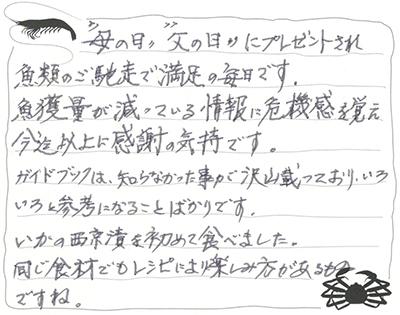 "母の日" "父の日" にプレゼントされ
魚類のご馳走で満足の毎日です。
魚獲量が減っている情報に危機感を覚え
今迄以上に感謝の気持です。
ガイドブックは、知らなかった事が沢山載っており、いろ
いろと参考になることばかりです。
いかの西京漬を初めて食べました。
同じ食材でもレシピにより楽しみ方があるもの
ですね。